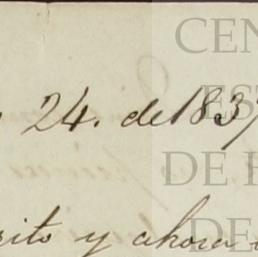 24. de 183
y ahora
CEN
EST
DE H
DE